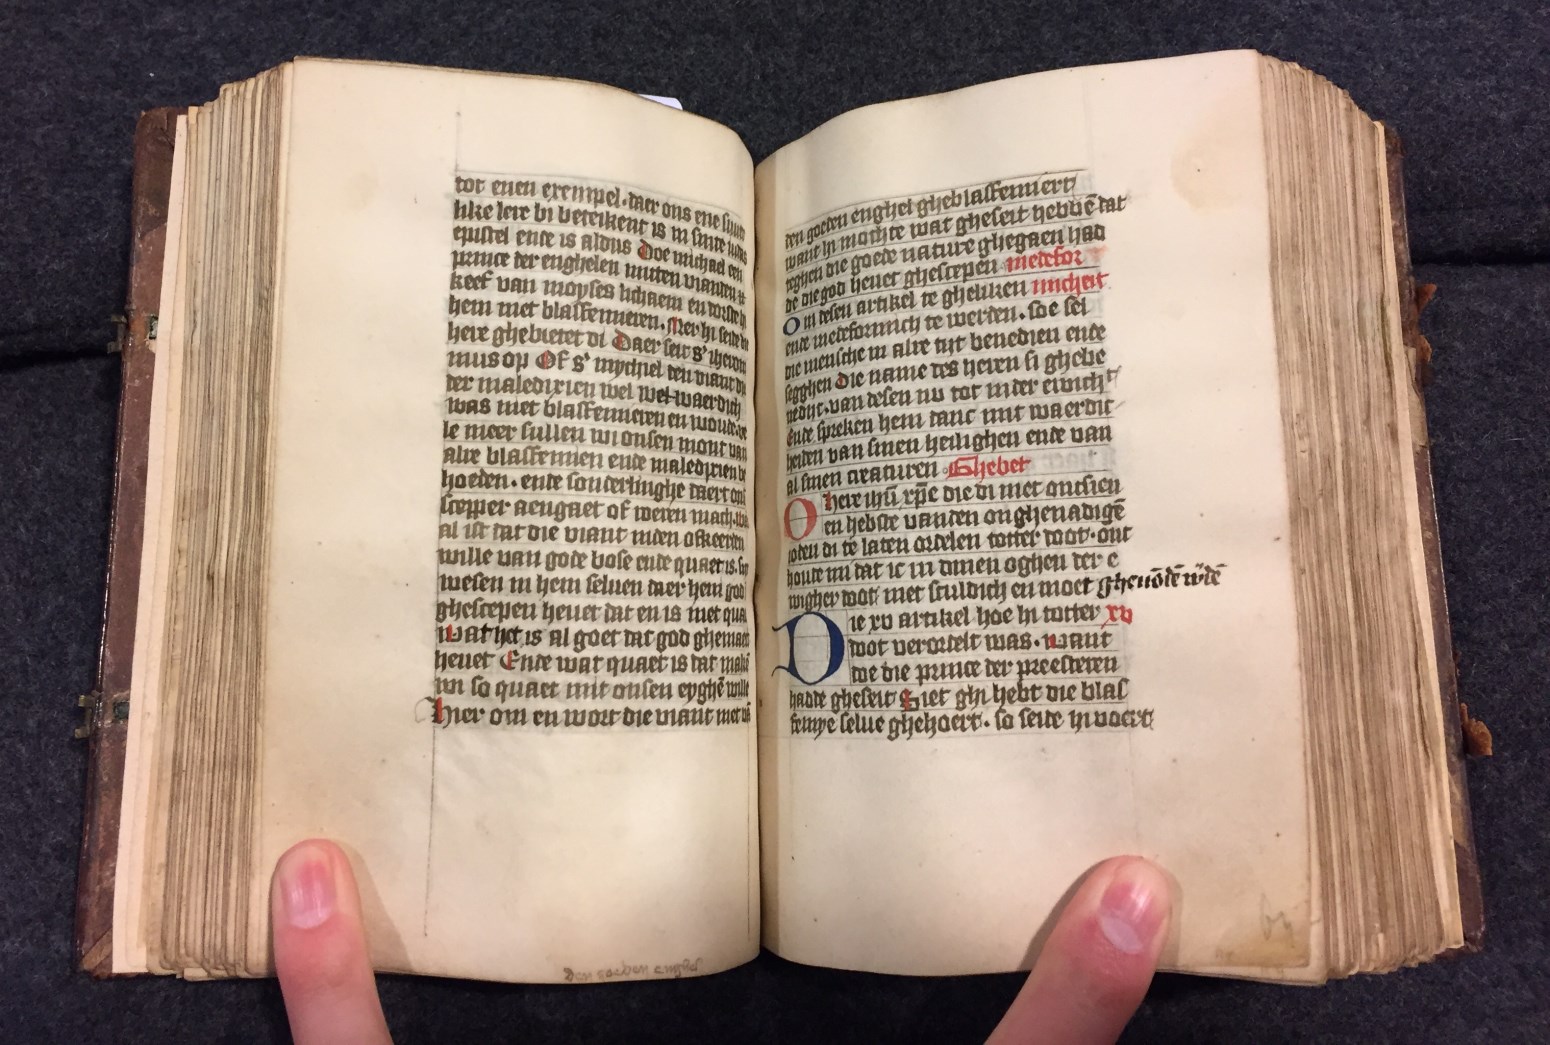 tot enen exempel. daer ons ene
like lere bi beteikent is in sinte
epistel ende is aldus Doe michael
prince der enghelen
keef van moyses lichaem en dorste
hem niet blasfemieren. Mer hi seide
here ghebietet di Daer seit s' iheroni
mus op Of s' mychiel den viant
der maledixien wel wel waerdich
was niet blasfemieren en woude
le meer sullen wi onsen mont van
alre blasfemien ende maledixien
hoeden. ende sonderlinghe daert ons
scepper aengaet of weren mach.
al ist dat die viant
wille van gode bose ende quaet is.
wesen in hem seluen daer hem god
ghescepen heuet dat en is niet
Wat het is al goet dat god ghemaect
heuet Ende wat quaet is dat maken
wi so quaet mit onsen eyghē wille
Hier om en wort die viant niet
Den goeden enghel
den goeden enghel gheblasfemiert
want hi mochte wat gheseit hebbē dat
teghen die goede nature ghegaen had
de die god heuet ghescepen medefor
In desen artikel te gheliken micheit
ende medeformich te werden. soe sel
die mensche in alre tijt benedien ende
segghen Die name des heren si ghebe
nedijt. van desen nu tot in der ewich't
Ende spreken hem danc mit waerdic
heiden van sinen heilighen ende van
al sinen creaturen Ghebet
O here ihū xp̄e die di niet ontsien
en hebste vanden onghenadighē
ioden di te laten ordelen totter doot. ont
houde mi dat ic in dinen oghen der e
wigher doot niet sculdich en moet ghevōdē w'dē
Die xv artikel hoe hi totter xv
doot verordelt was. Want
doe die prince der preesteren
hadde gheseit Siet ghi hebt die blas
femye selue ghehoert. so seide hi voert